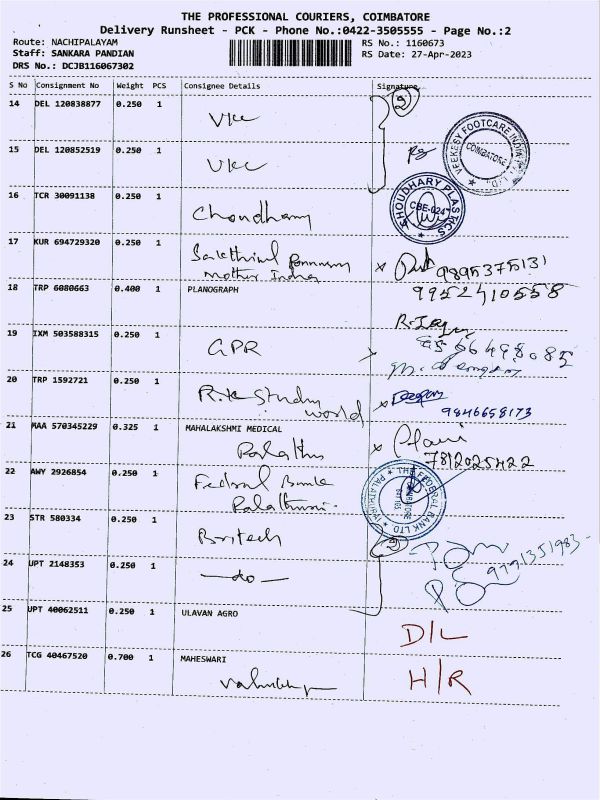 THE PROFESSIONAL COURIERS, COIMBATORE
Delivery Runsheet - PCK - Phone No.:0422-3505555 - Page No.:2
Route: NACHIPALAYAM
RS No.: 1160673
Staff: SANKARA PANDIAN
RS Date: 27-Apr-2023
DRS No.: DCJB116067302
S No Consignment No Weight PCS Consignee Details Signature
14 DEL 120838877 0.250 1
VKC
2
15 DEL 120852519 0.250 1
VKC
VEEKESY FOOTCARE INDIA PVT. LTD
COIMBATORE
16 TCR 30091138 0.250 1
Choudhary
CHOUDHARY PLASTICS
CBE-024
17 KUR 694729320 0.250 1
Mother India
9895375131
18 TRP 6080663 0.400 1 PLANOGRAPH
9952410558
19 IXM 503588315 0.250 1
GPR
20 TRP 1592721 0.250 1
R.K Study
world
9846658173
21 MAA 570345229 0.325 1 MAHALAKSHMI MEDICAL
7812025422
22 AWY 2926854 0.250 1
Fedral Bank
THE FEDERAL BANK LTD
23 STR 580334 0.250 1
Britech
2
24 UPT 2148353 0.250 1
—do—
9791351983-
25 UPT 40062511 0.250 1 ULAVAN AGRO
D/L
26 TCG 40467520 0.700 1 MAHESWARI
H/R